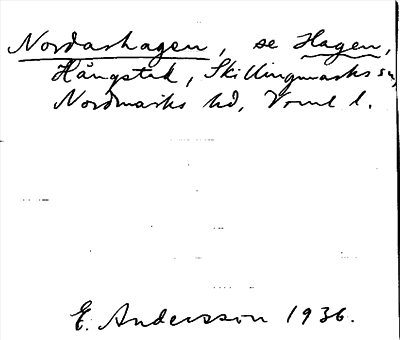 Nordashagen, se Hagen,
Hångstad, Skillingmarks sn,
Nordmarks hd, Vrml l.
E. Andersson 1936.